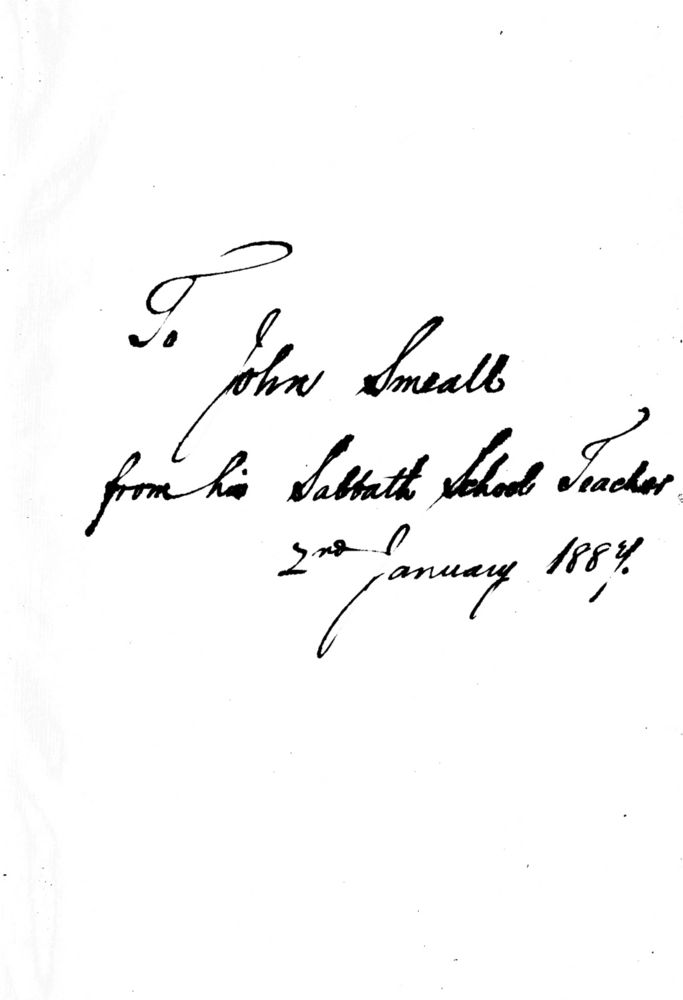 To
John Smeall
from his Sabbath School Teacher
2nd January 1887.